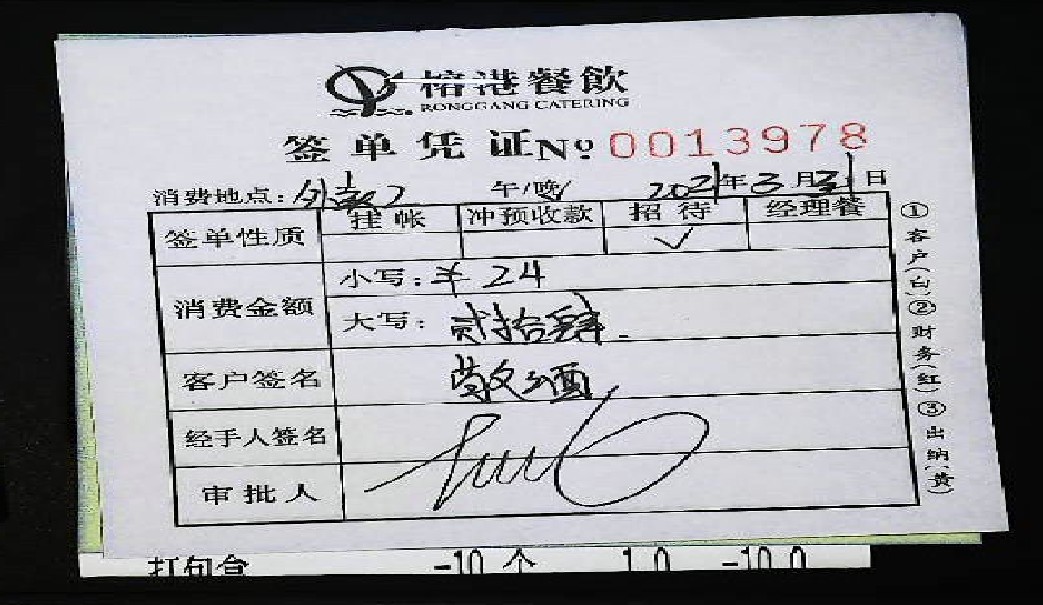 榕港餐飲
RONGGANG CATERING
签单凭证 Nº 0013978
消费地点： 午/晚 2021年3月31日
签单性质 挂帐 冲预收款 招待 经理餐
✓
消费金额 小写：¥ 24
大写：贰拾肆
客户签名
经手人签名
审批人
①客户(白)②财务(红)③出纳(黄)
打包盒 -10 个 1.0 -10.0